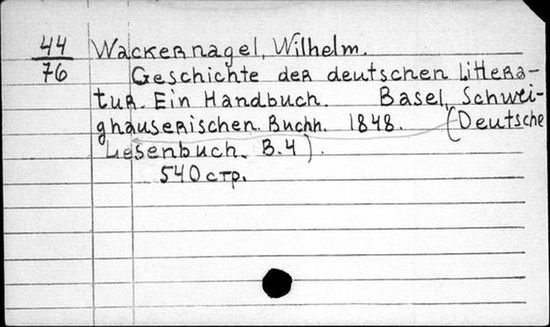 44 Wackernagel, Wilhelm.
76 Geschichte der deutschen Littera-
tur. Ein Handbuch. Basel, Schwei-
ghauserischen Buchh. 1848. (Deutsche
Lesenbuch. B.4).
540 стр.